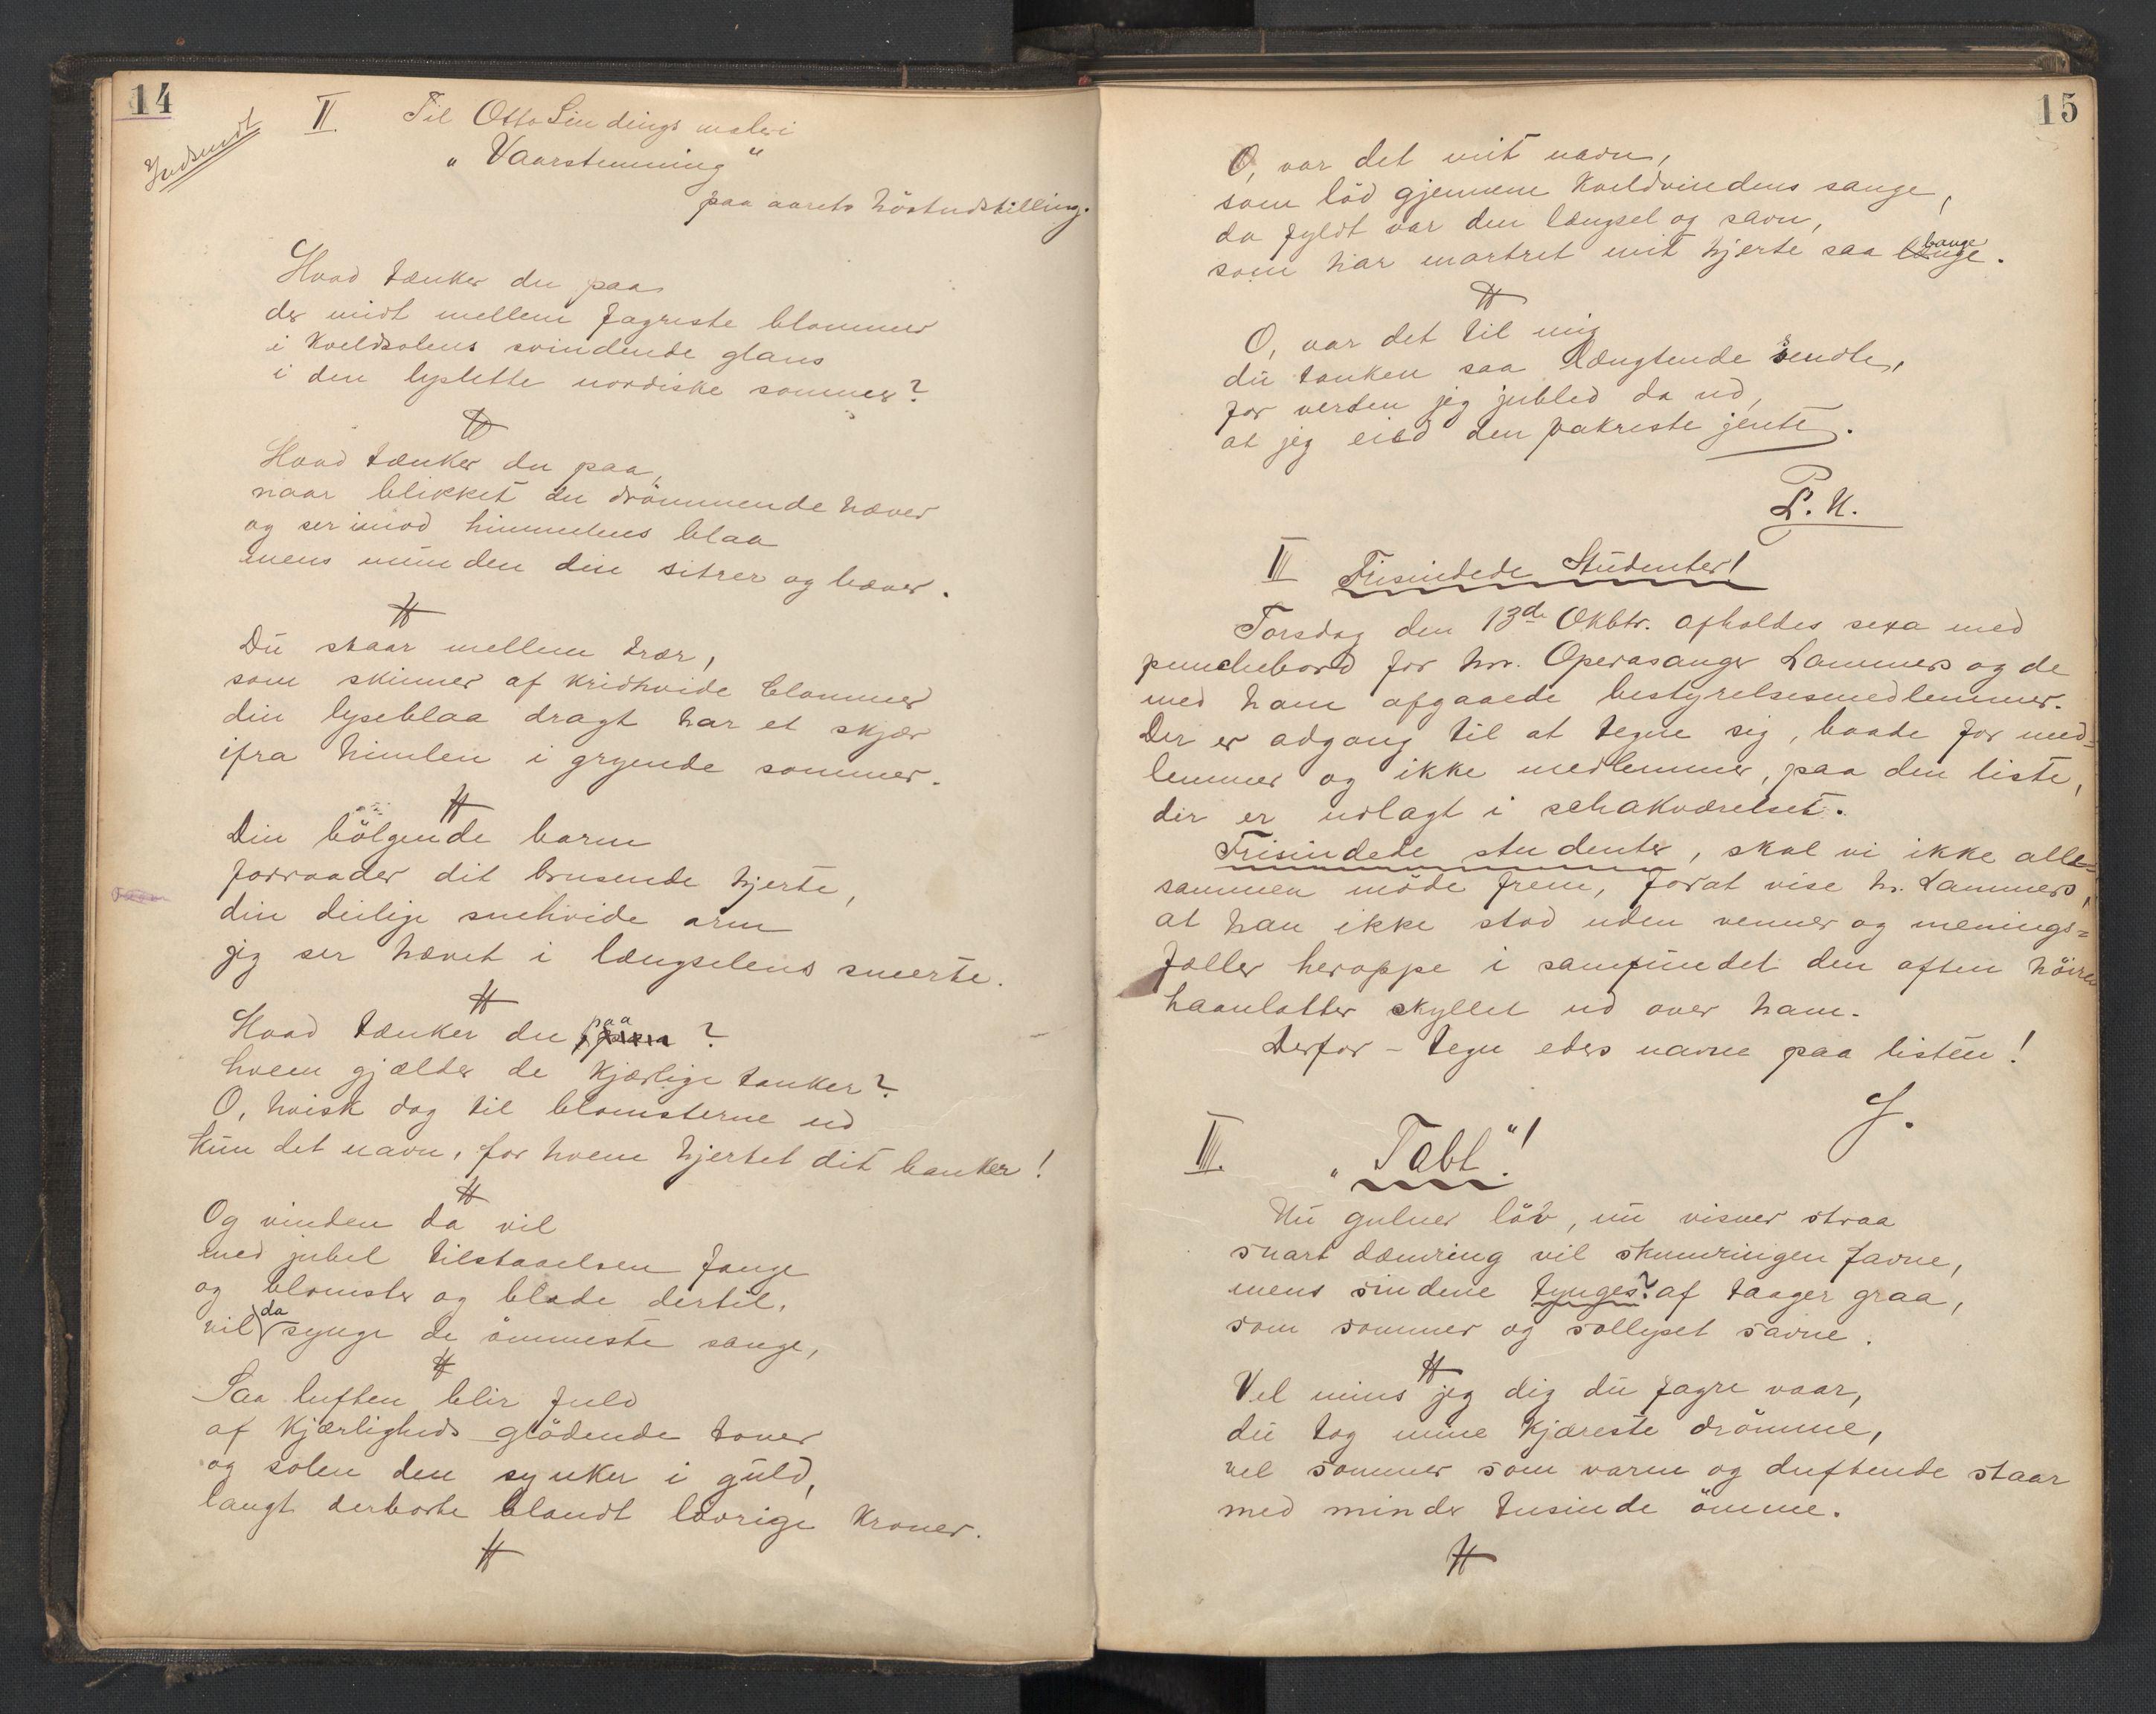 14
Indsendt
II. Til Otto Sindings maleri
„Vaarstemning“
paa aarets höstudstilling.
Hvad tænker du paa
der midt mellem fagreste blommer
i kveldsolens svindende glans
i den lyslette nordiske sommer?
Hvad tænker du paa,
naar blikket du drömmende hæver
og ser imod himmelens blaa
mens munden din sitrer og bæver.
Du staar mellem trær,
som skinner af kridhvide blommer
din lyseblaa dragt har et skjær
ifra himlen i gryende sommer.
Din bölgende barm
forraader dit brusende hjerte,
din deilige snehvide arm
jeg ser hævet i længselens smerte.
Hvad tænker du paa ?
hvem gjælder de kjærlige tanker?
O, hvisk dog til blomsterne ud
kun det navn, for hvem hjertet dit banker!
Og vinden da vil
med jubel tilstaaelsen fange
og blomster og blade dertil,
vil da synge de ömmeste sange,
Saa luften blir fuld
af kjærligheds glödende toner
og solen den synker i guld,
langt derborte blandt løvrige kroner.
15
O, var det mit navn,
som löd gjennem kveldvindens sange,
da fyldt var den længsel og savn,
som har martret mit hjerte saa bange.
O, var det til mig
du tanken saa længtende sendte,
for verden jeg jubled da ud,
at jeg eied den vakreste jente.
P. K.
III Frisindede Studenter!
Torsdag den 13de Oktbr. afholdes sexa med
punchebord for hr. Operasanger Lammers og de
med ham afgaaede bestyrelsesmedlemmer.
Der er adgang til at tegne sig, baade for med=
lemmer og ikke medlemmer, paa den liste,
der er udlagt i schakværelset.
Frisindede studenter, skal vi ikke alle=
sammen möde frem, forat vise hr. Lammers,
at han ikke stod uden venner og menings=
fæller heroppe i samfundet den aften höire
haanlatter skyllet ud over ham.
Derfor – tegn eders navne paa listen!
J.
III. „Tabt“!
Nu gulner löv, nu visner straa
snart dæmring vil skumringen favne,
mens sindene tynges? af taager graa,
som sommer og sollyset savne.
Vel mins jeg dig du fagre vaar,
du tog mine kjæreste drömme,
vel sommer som varm og duftende staar
med minder tusinde ömme.